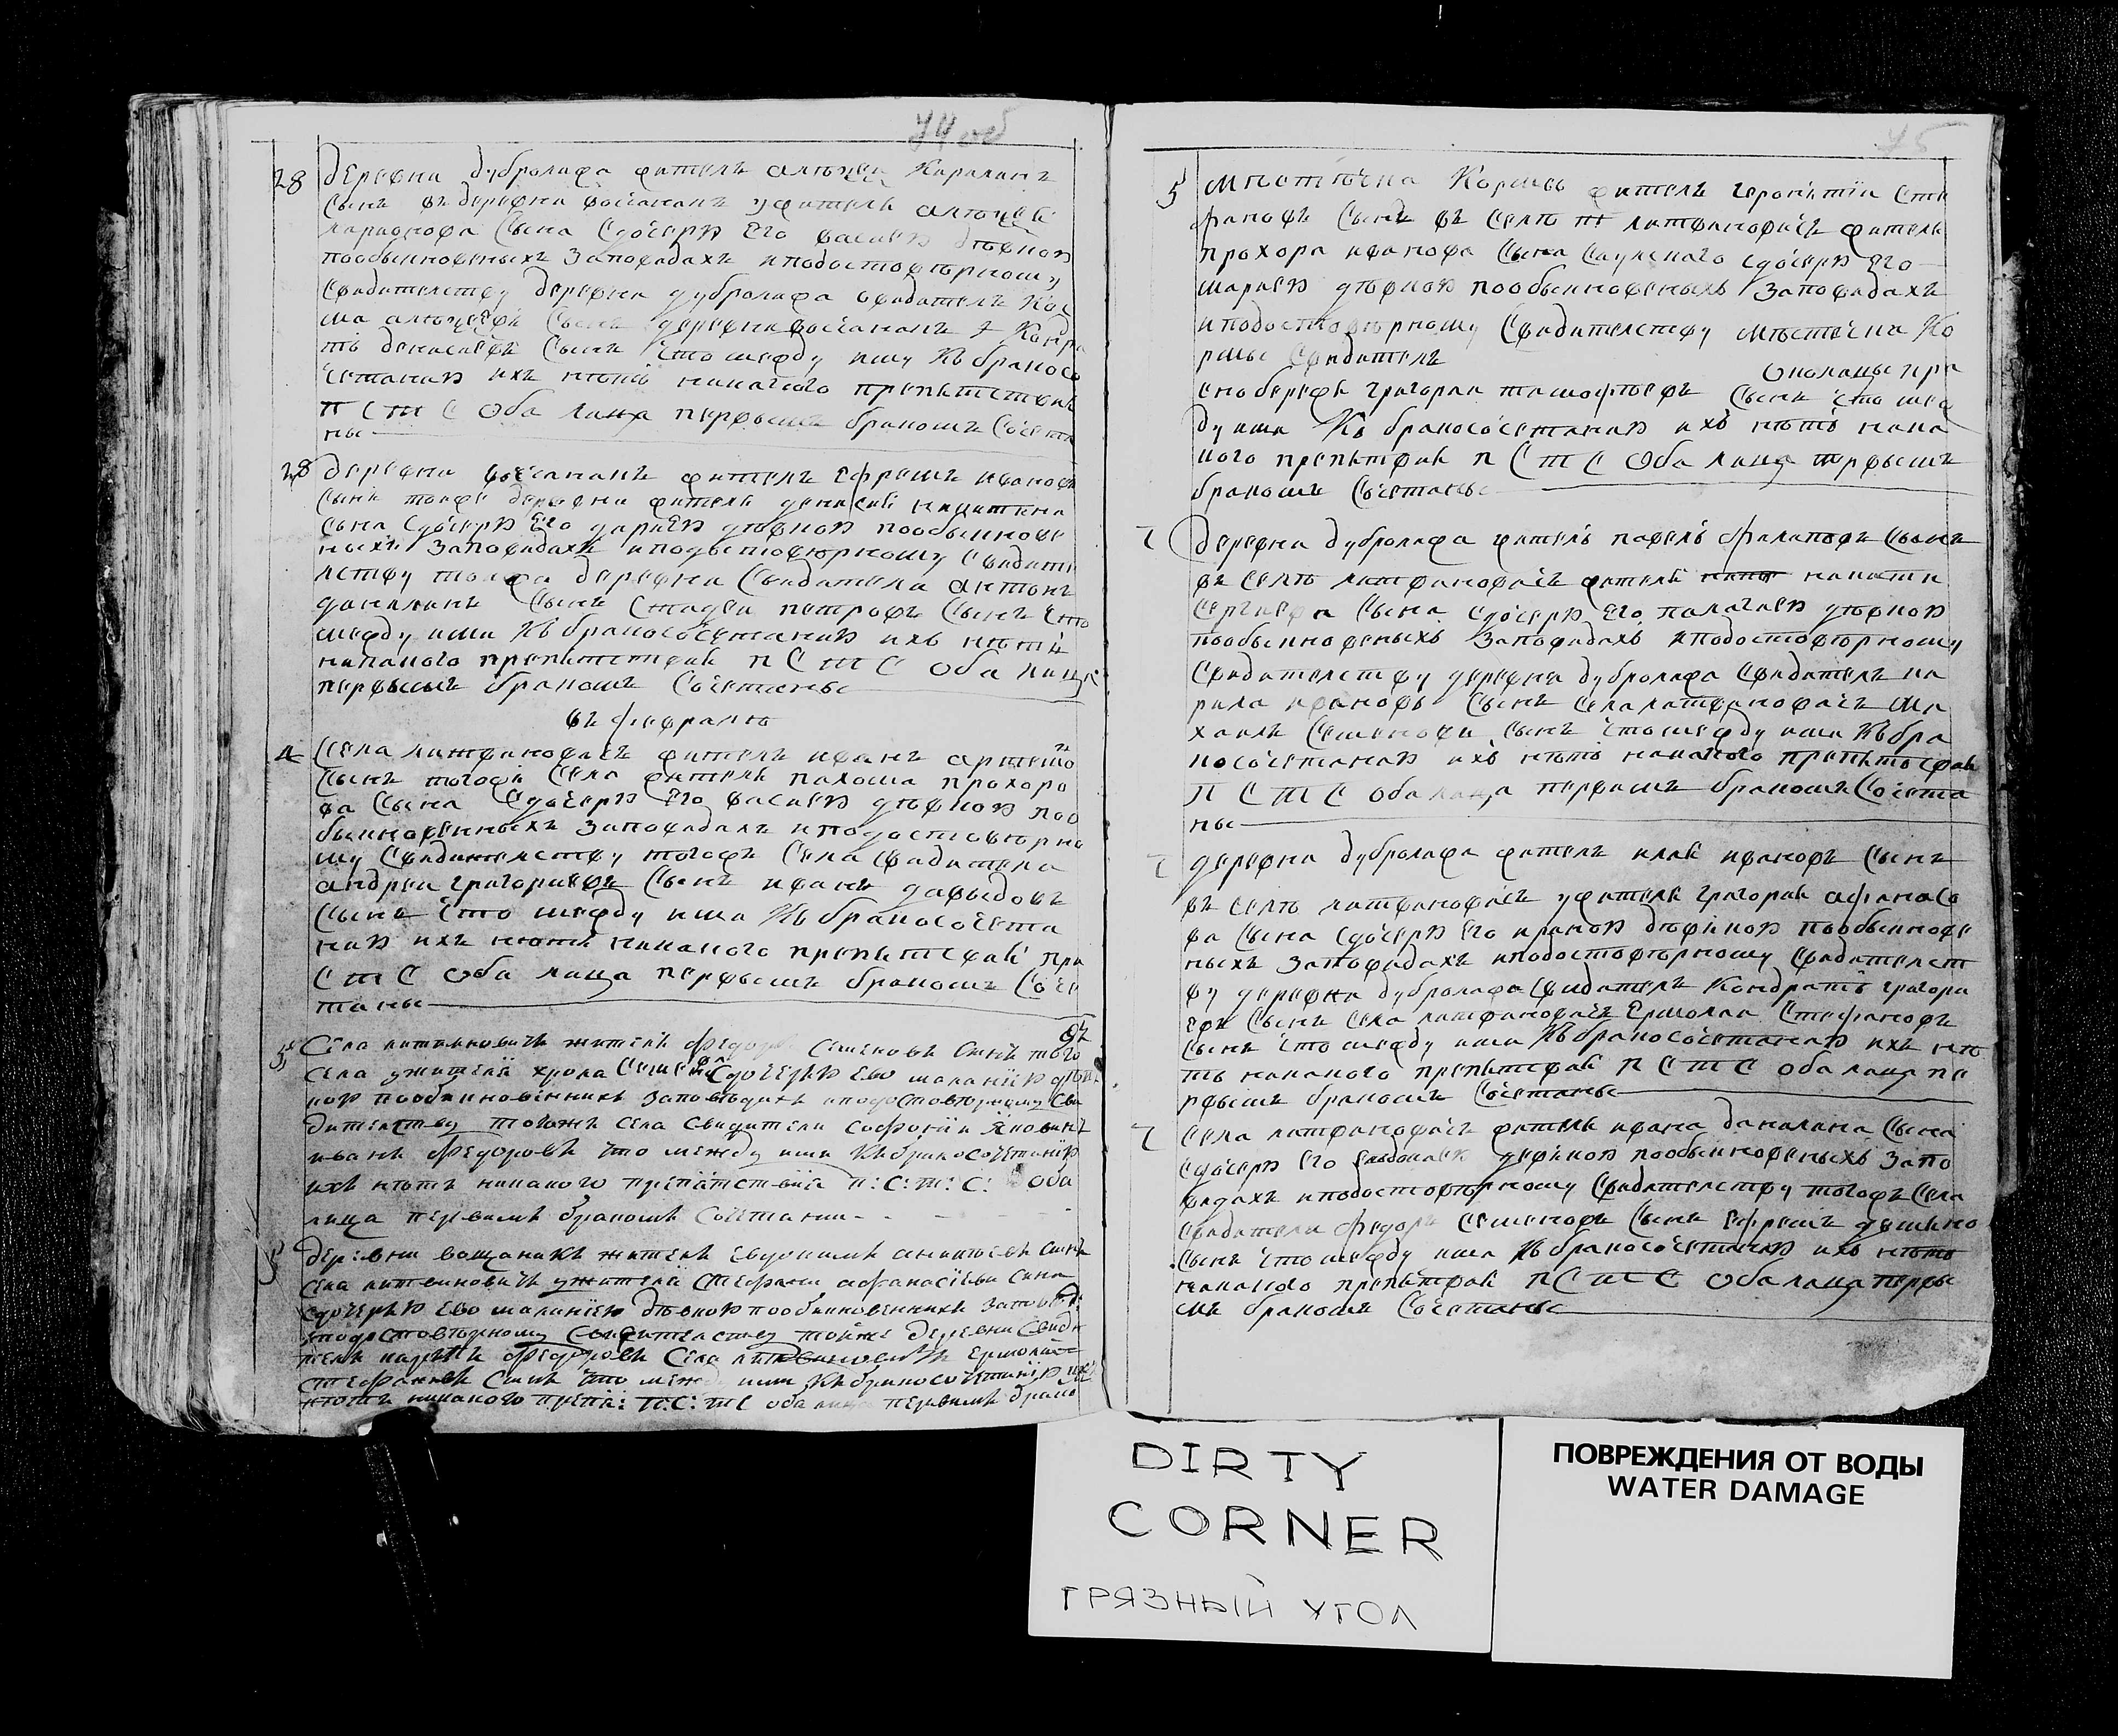 74 об
28 деревни дубролифа фителъ алъюѯей Кирилинъ
сынъ въ деревни вощанакъ у фителя
лариѡнова сына съдочерю его василею дѣвкою
пообыкновеныхъ заповедахъ иподостоверному
свидителству деревни дубролифа свидителъ Кос
ма сынъ деревни вощанакъ Кондра
тъ денисиевъ сынъ что между ими къ бракосо
четанию ихъ нѣтъ никакого препятствия
п с т с оба лица первымъ бракомъ сочета
ны
28 деревни вощанакъ фителъ ефремъ ивановъ
сынъ тояже деревни фителя никитина
сына съдочерю его дариею дѣвкою пообыкнове
ныхъ заповедахъ иподостоверному свидите
лству тояжа деревни свидители антонъ
данилинъ сынъ петровъ сынъ что
между ими къ бракосочетанию ихъ нѣтъ
никакого препятствия п с т с оба лица
первымъ бракомъ сочетаны
въ феврале
4 села литвиновичъ фителъ иванъ
сынъ тогожъ села фителя пахома прохоро
ва сына съдочерю его василею дѣвкою поо
быкновенныхъ заповедахъ иподостоверно
му свидителству тогожъ села свидители
андрей григориевъ сынъ иванъ давыдовъ
сынъ что между ими къ бракосочета
нию ихъ нѣтъ никакого препятствия при
с т с оба лица первымъ бракомъ соче
таны
5 села литвиновичъ житель федоръ семеновъ синъ того
села ужителя хрола съдочерью ево маланїею дѣв
кою пообикновеннихъ заповѣдихъ иподостовѣрному сви
дителству тогожъ села свидители софонїи
иванъ федоровъ что между ими къ бракосочетанїю
ихъ нѣтъ никакого препятствия п: с: т: с: оба
лица первимъ бракомъ сочетани
5 деревни вощанакъ житель синъ
села литвиновичъ ужителя стефана афанасїева сина
съдочерью ево маланїею дѣвкою пообикновеннихъ запов
иподостовѣрному свидителству тойже деревни свиди
тели федоровъ села литвиновичъ ермолай
стефановъ синъ что межд ими къ бракосочетанїю
нѣтъ никакого препя: п: с: т с оба лица первимъ брако
75
5 мѣстечка Кормы фителъ геронтїи сте
фановъ сынъ въ селѣ литвиновичъ фителя
прохора иванова сына съдочерю его
мариею дѣвкою пообыкновеныхъ заповедахъ
иподостоверному свидителству мѣстечка Ко
рмы свидителъ
григорий тимофѣевъ сынъ что меж
ду ими къ бракосочетанию ихъ нѣтъ ника
кого препятвия п с т с оба лица первымъ
бракомъ сочетаны
7 деревни дубролифа фителъ павелъ филиповъ сынъ
въ селѣ литвиновичъ фителя никити
сергиева сына съдочерю его палагиею дѣвкою
пообыкновеныхъ заповедахъ иподостоверному
свидителству деревни дубролифа свидителъ ки
рила ивановъ сынъ села литвиновичъ ми
хаила семеновъ сынъ что между ими къ бра
косочетанию ихъ нѣтъ никакого препятсвия
п с т с оба лица первымъ бракомъ сочета
ны
7 деревни дубролифа фителъ илия ивановъ сынъ
въ селѣ литвиновичъ у фителя григория афанасо
ва сына съдочерю его дѣвкою пообыкнове
ныхъ заповедахъ иподостоверному свидителст
ву деревни дубролифа свидителъ Кондратъ григори
евъ сынъ села литвиновичъ ермолай стефановъ
сынъ что между ими къ бракосочетанию ихъ нѣ
тъ никакого препятвия п с т с оба лица пе
рвымъ бракомъ сочетаны
7 села литвиновичъ фителя ивана данилина сына
съдочерю его дѣвкою пообыкновеныхъ запо
ведахъ иподостоверному свидителству тогожъ села
свидители федоръ семеновъ сынъ ефремъ
сынъ что между ими къ бракосочетанию ихъ нѣтъ
никакого препятвия п с т с оба лица первы
мъ бракомъ сочетаны
DIRTY
CORNER
ГРЯЗНЫЙ УГОЛ
ПОВРЕЖДЕНИЯ ОТ ВОДЫ
WATER DAMAGE